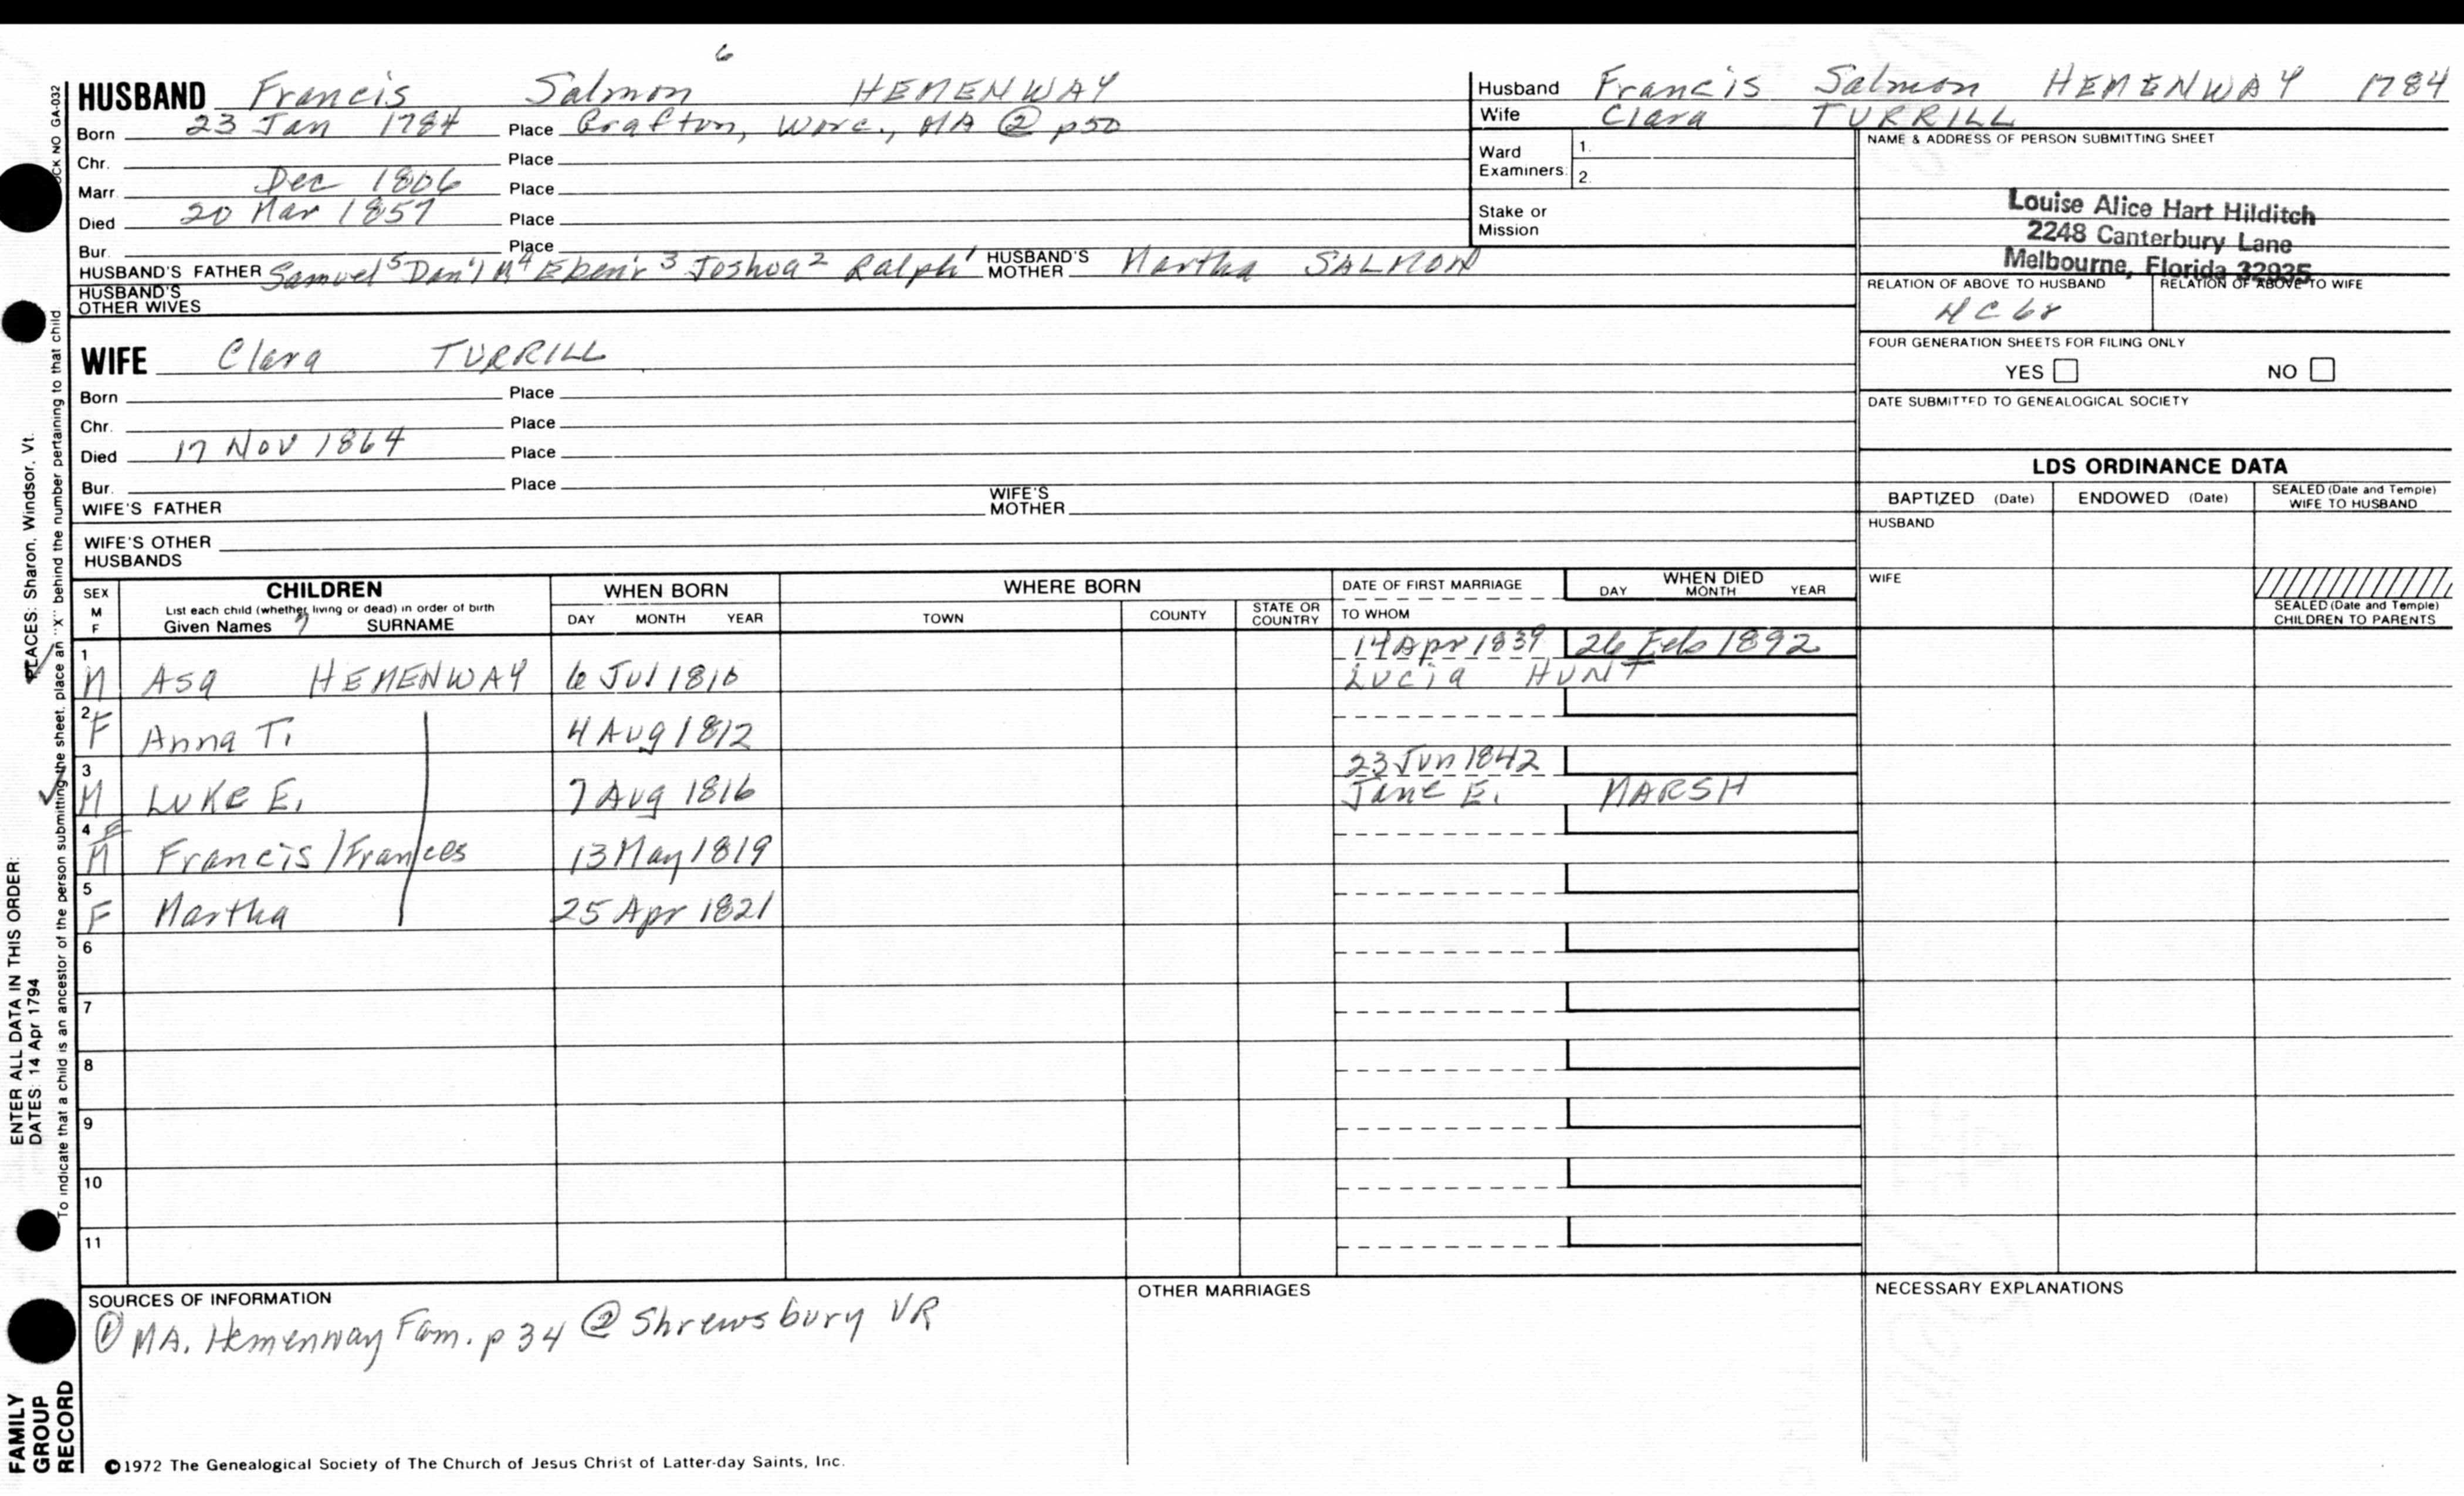 6
HUSBAND Francis Salmon HEMENWAY
Born 23 Jan 1784 Place Grafton, Worc., MA ② p50
Chr. Place
Marr. Dec 1806 Place
Died 20 Mar 1857 Place
Bur. Place
HUSBAND'S FATHER Samuel 5 Dan'l M 4 Eben'r 3 Joshua 2 Ralph 1 HUSBAND'S MOTHER Martha SALMON
HUSBAND'S OTHER WIVES
Husband Francis Salmon HEMENWAY 1784
Wife Clara TURRILL
Ward Examiners: 1.
2.
Stake or Mission
NAME & ADDRESS OF PERSON SUBMITTING SHEET
Louise Alice Hart Hilditch
2248 Canterbury Lane
Melbourne, Florida 32935
RELATION OF ABOVE TO HUSBAND RELATION OF ABOVE TO WIFE
FOUR GENERATION SHEETS FOR FILING ONLY
YES NO
DATE SUBMITTED TO GENEALOGICAL SOCIETY
WIFE Clara TURRILL
Born Place
Chr. Place
Died 17 Nov 1864 Place
Bur. Place
WIFE'S FATHER WIFE'S MOTHER
WIFE'S OTHER HUSBANDS
LDS ORDINANCE DATA
BAPTIZED (Date) ENDOWED (Date) SEALED (Date and Temple) WIFE TO HUSBAND
HUSBAND
WIFE
SEALED (Date and Temple) CHILDREN TO PARENTS
SEX M F
CHILDREN
List each child (whether living or dead) in order of birth
Given Names 7 SURNAME
WHEN BORN
DAY MONTH YEAR
WHERE BORN
TOWN COUNTY STATE OR COUNTRY
DATE OF FIRST MARRIAGE
TO WHOM
WHEN DIED
DAY MONTH YEAR
1 M Asa HEMENWAY 6 Jul 1810 14 Apr 1839 26 Feb 1892
Lucia HUNT
2 F Anna T. 4 Aug 1812
3 M Luke E. 7 Aug 1816 23 Jun 1842
Jane E. MARSH
4 F M Francis/Frances 13 May 1819
5 F Martha 25 Apr 1821
6
7
8
9
10
11
SOURCES OF INFORMATION
① MA. Hemenway Fam. p 34 ② Shrewsbury VR
OTHER MARRIAGES
NECESSARY EXPLANATIONS
©1972 The Genealogical Society of The Church of Jesus Christ of Latter-day Saints, Inc.
FAMILY
GROUP
RECORD
ENTER ALL DATA IN THIS ORDER:
DATES: 14 Apr 1794 PLACES: Sharon, Windsor, Vt.
To indicate that a child is an ancestor of the person submitting the sheet, place an "X" behind the number pertaining to that child
NO GA-032